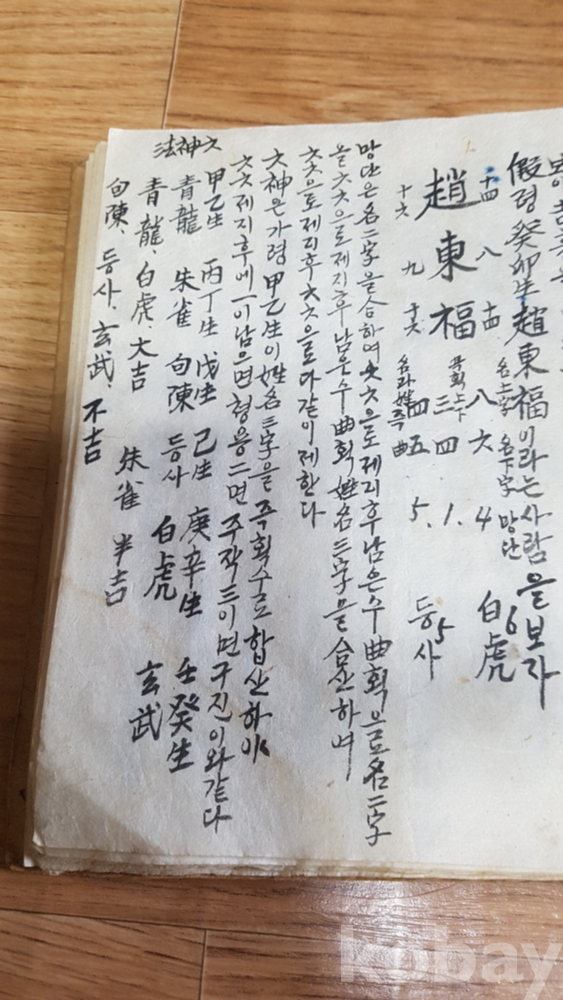 假令 癸卯生 趙東福이라는 사람을 보자
十四 八 十四 名上字 八 六 名下字 망단 4 6 白虎
趙東福 三 四 1.
十六 九 十六 四 五 5. 5 등사
망단은 名二字을 合하여 六六으로 제지후 남은수 曲획을로 名二字
을 六六으로 제지후 남은수 曲획 姓名 三字을 合산하여
六六으로 제지후 六六으로 다같이 제한다
六神은 가령 甲乙生이 姓名 三字을 즉획수로 합산하야
六六 제지후에 一이 남으면 청용 二면 주작 三이면 구진 이와 같다
六神法
甲乙生 丙丁生 戊生 己生 庚辛生 壬癸生
青龍 朱雀 句陳 등사 白虎 玄武
青龍、白虎、大吉 朱雀 半吉
句陳、등사、玄武、不吉
kobay